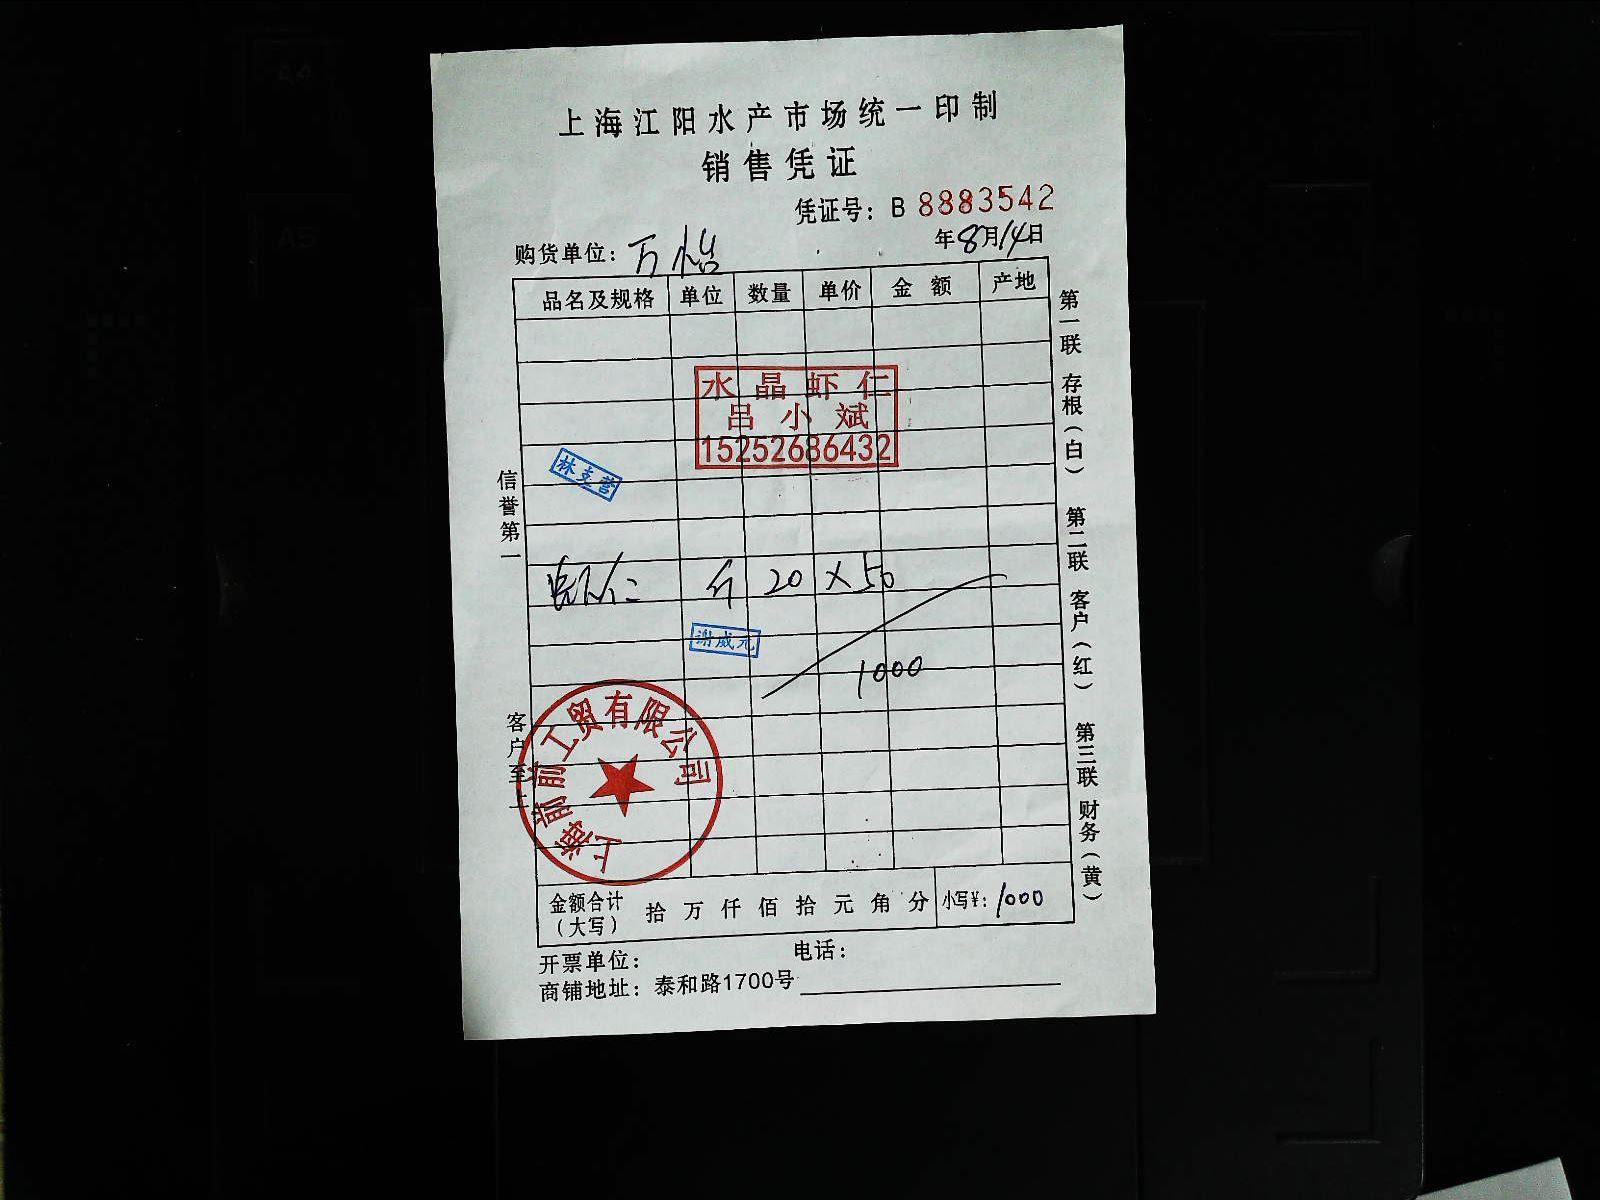 上海江阳水产市场统一印制
销售凭证
凭证号：B 8883542
购货单位：万怡 年8月14日
品名及规格 单位 数量 单价 金额 产地
水晶虾仁
吕小斌
15252686432
林支营
虾仁 斤 20 X 50
谢威元
1000
上海前前工贸有限公司
金额合计（大写） 拾 万 仟 佰 拾 元 角 分 小写¥：1000
开票单位： 电话：
商铺地址：泰和路1700号
信誉第一
客户至上
第一联 存根（白） 第二联 客户（红） 第三联 财务（黄）
A4
A5